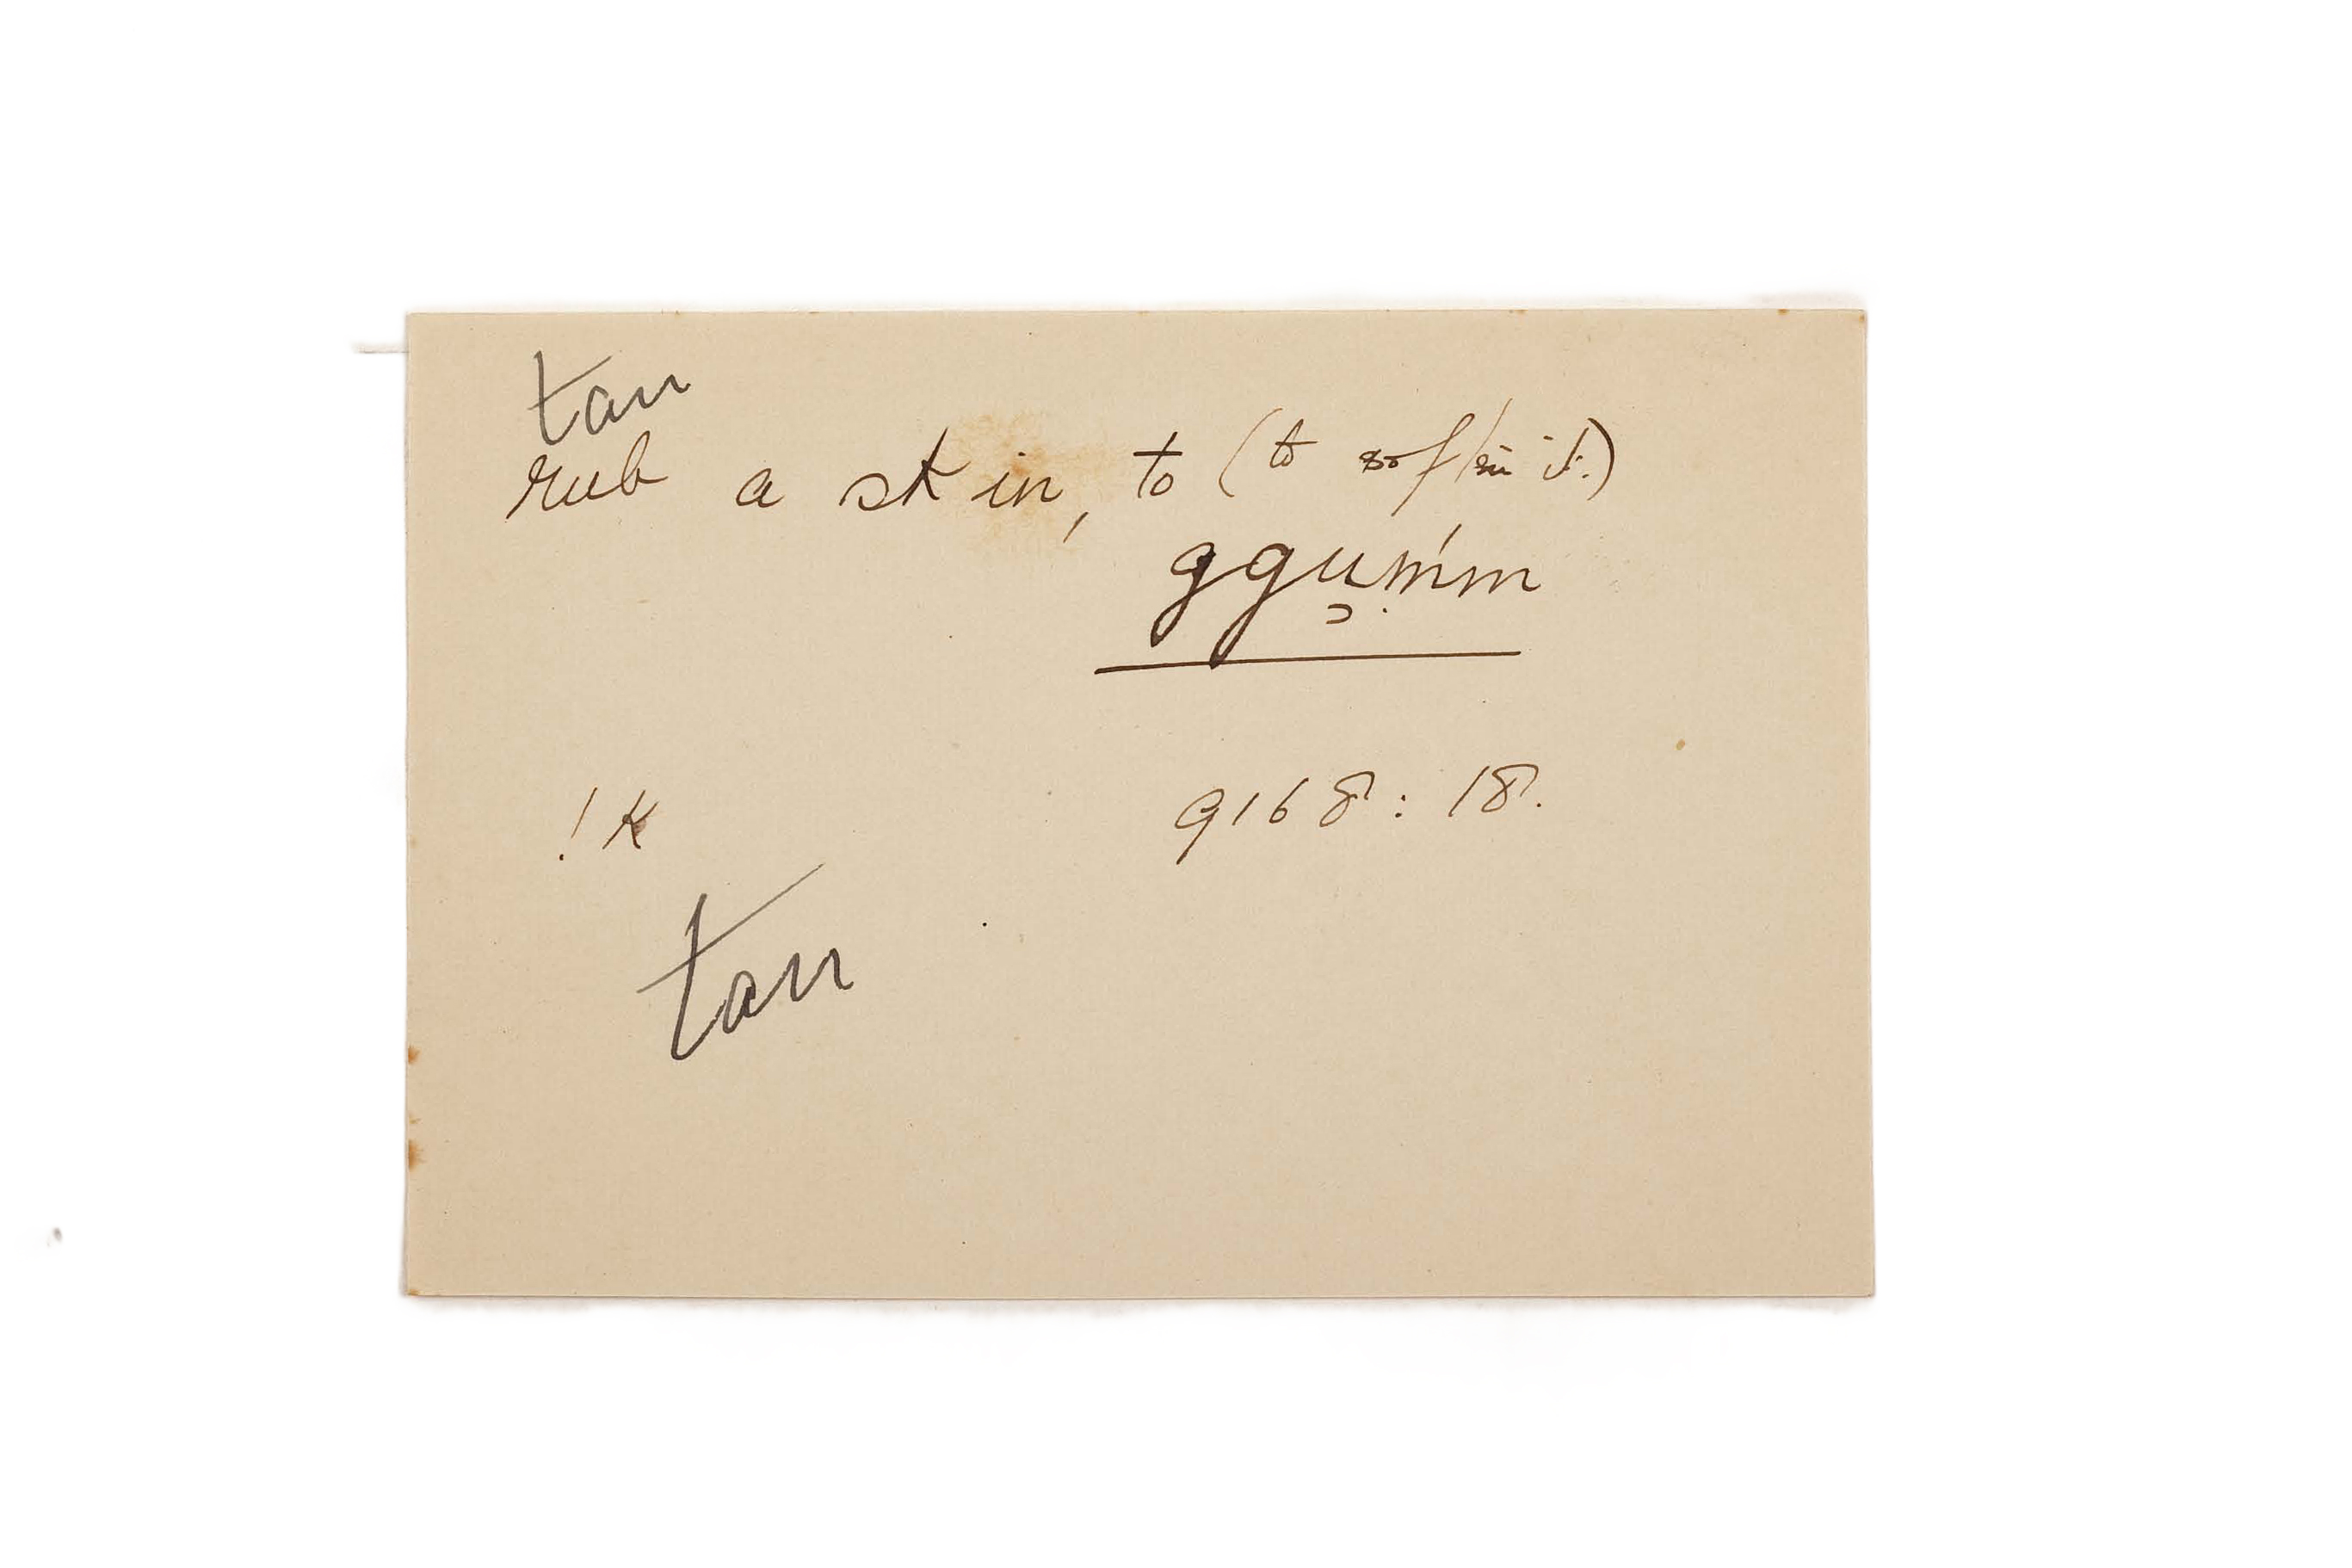 tan
rub a skin, to (to soften it.)
ggu̜ḿm
!k 9168: 18.
tan